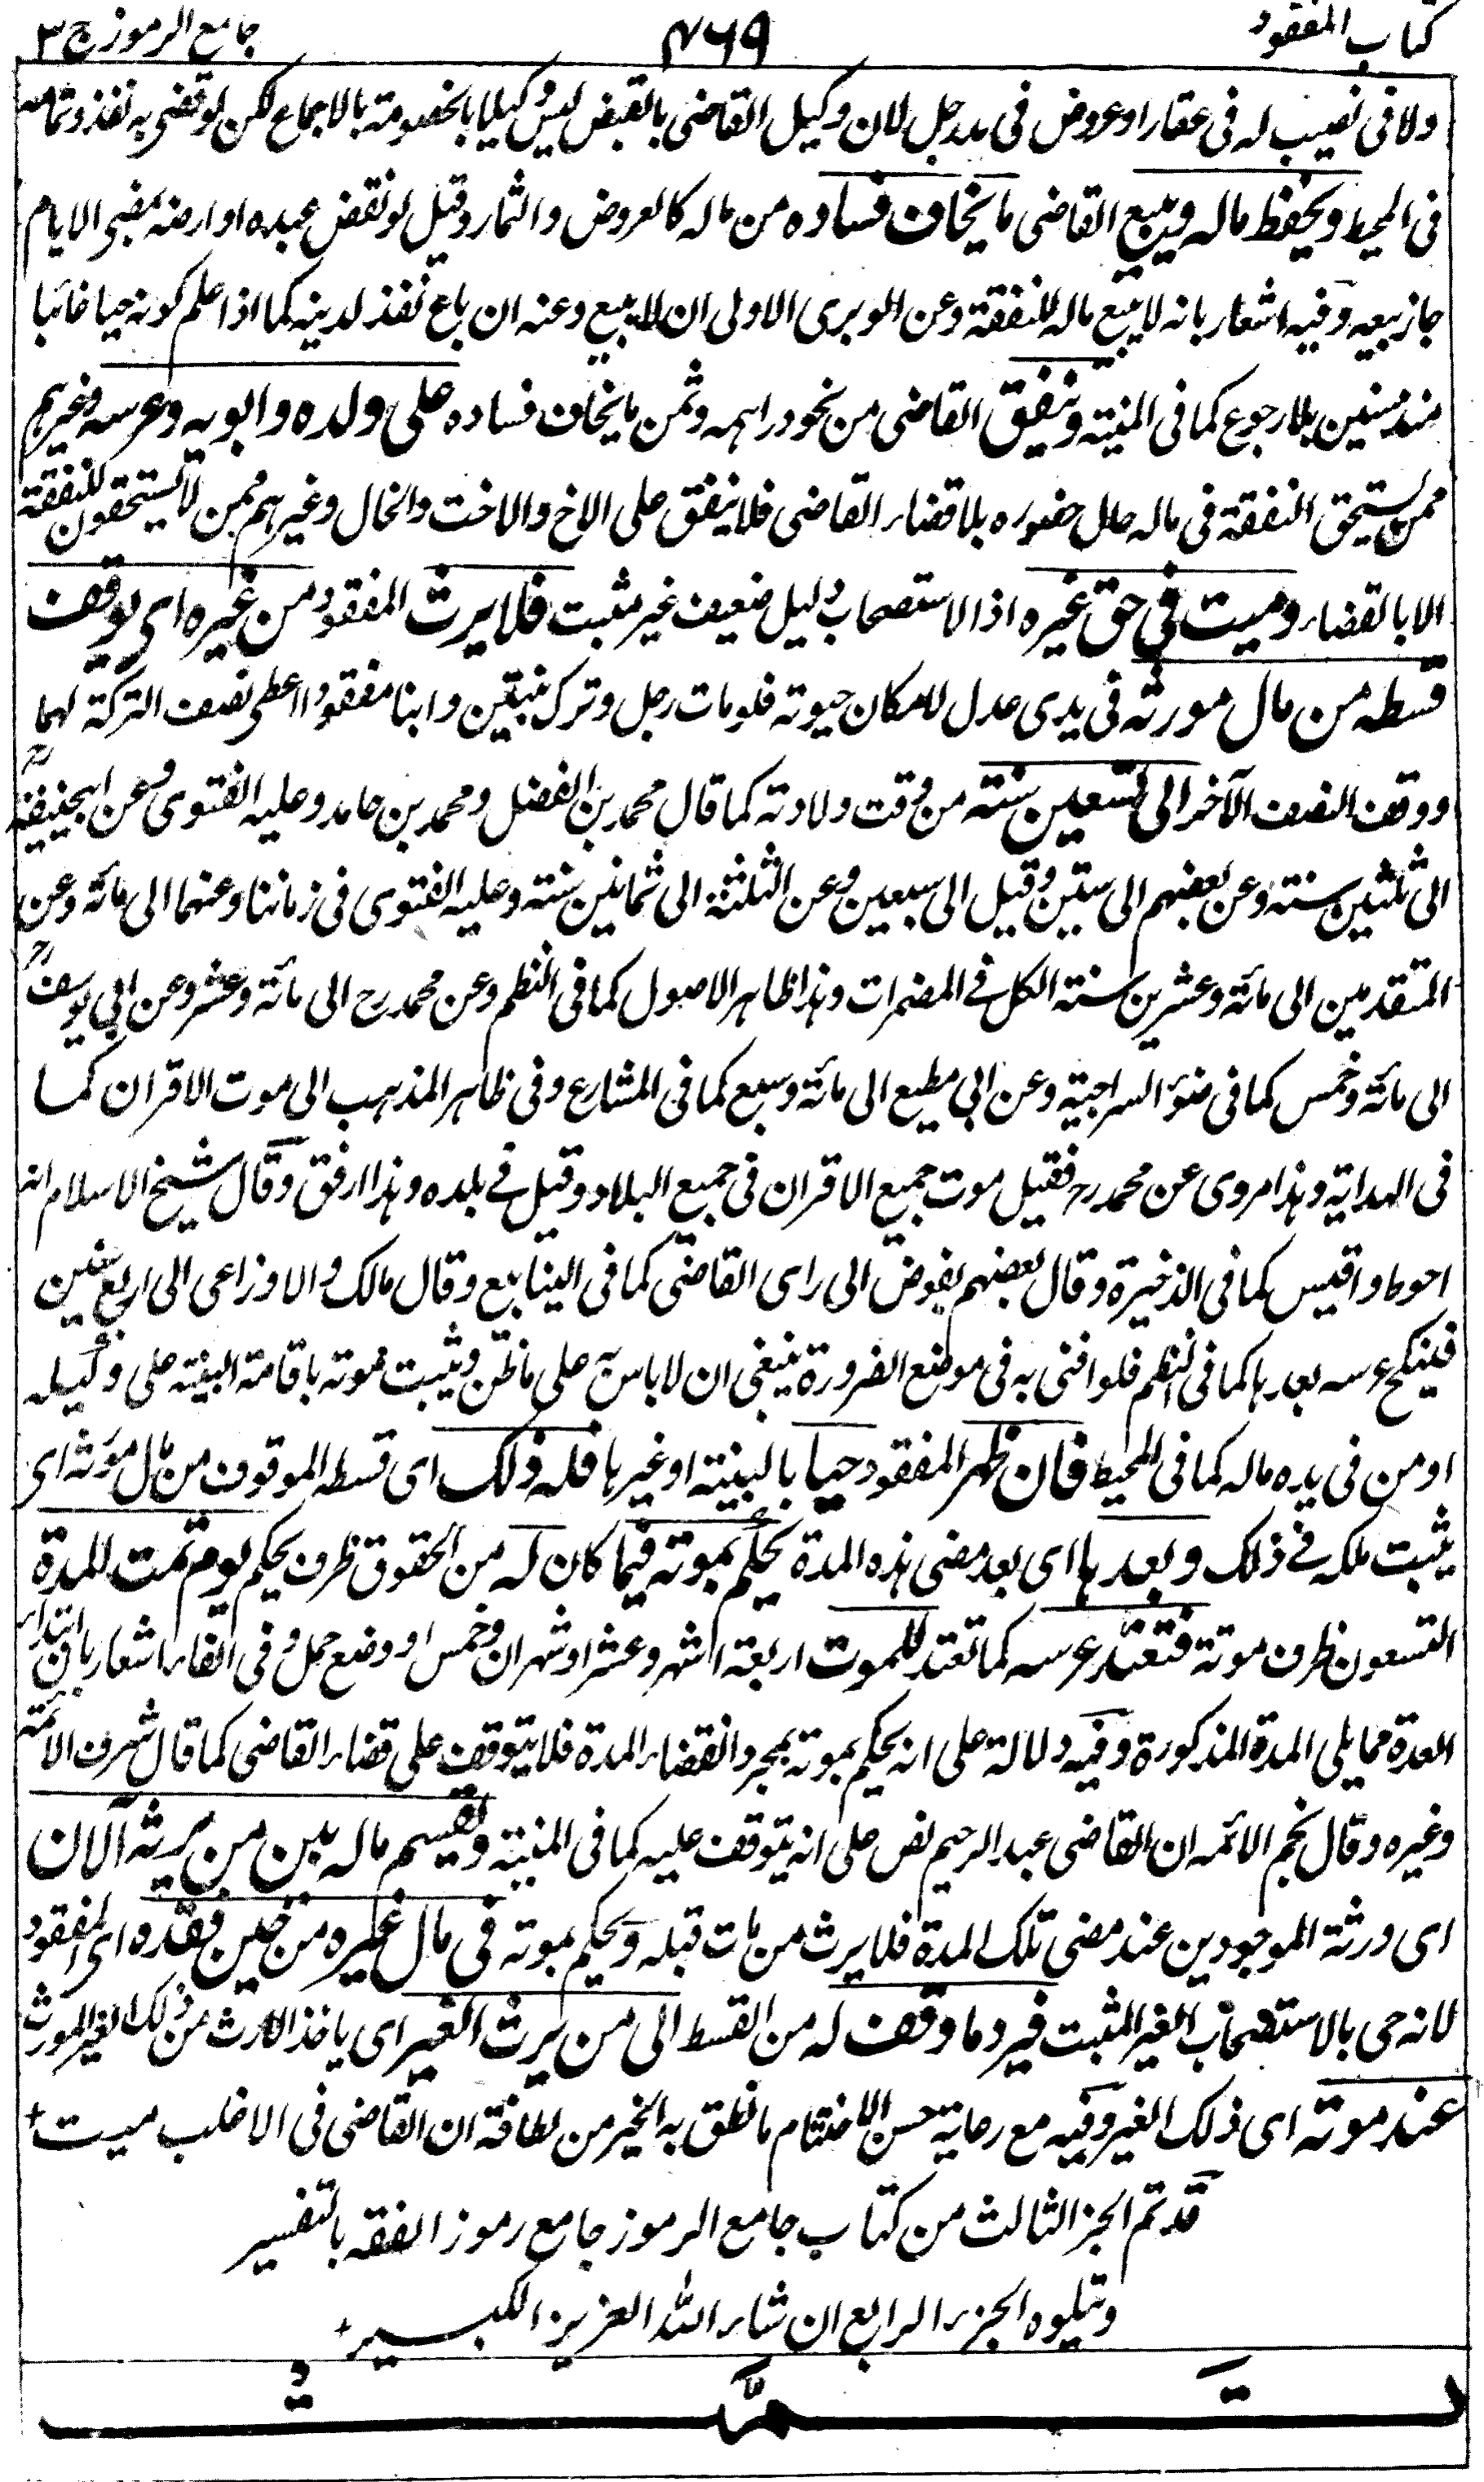 كتاب المفقود ٤٦٩ جامع الرموز ج ٣
ولا فى نصيب له فى عقار او عروض فى يد رجل لان وكيل القاضى بالقبض ليس وكيلا بالخصومة بالاجماع لكن لو قضى به نفذ وتمامه
فى المحيط ويحفظ ماله ويبيع القاضى ما يخاف فساده من ماله كالعروض والثمار وقيل لو نقض عبده او ارضه بمضى الايام
جاز بيعه وفيه اشعار بانه لا يبيع ماله للنفقة وعن الوبرى الاولى ان لا يبيع وعنه ان باع نفذ لدينه كما اذا علم كونه حيا غائبا
منذ سنين بلا رجوع كما فى المنية وينفق القاضى من نحو دراهمه وثمن ما يخاف فساده على ولده وابويه وعرسه وغيرهم
ممن يستحق النفقة فى ماله حال حضوره بلا قضاء القاضى فلا ينفق على الاخ والاخت والخال وغيرهم ممن لا يستحقون النفقة
الا بالقضاء وميت فى حق غيره اذ الاستصحاب دليل ضعيف غير مثبت فلا يرث المفقود من غيره اى يوقف
قسطه من مال مورثه فى يدى عدل لامكان حيوته فلو مات رجل وترك بنتين وابنا مفقودا اعطى نصف التركة لهما
ووقف النصف الآخر الى تسعين سنة من وقت ولادته كما قال محمد بن الفضل ومحمد بن حامد وعليه الفتوى وعن ابيحنيفة رح
الى ثلثين سنة وعن بعضهم الى ستين وقيل الى سبعين وعن الثلثة الى ثمانين سنة وعليه الفتوى فى زماننا وعنهما الى مائة وعن
المتقدمين الى مائة وعشرين سنة الكل فى المضمرات وهذا ظاهر الاصول كما فى النظم وعن محمد رح الى مائة وعشر وعن ابى يوسف رح
الى مائة وخمس كما فى ضوء السراجية وعن ابى مطيع الى مائة وسبع كما فى المشارع وفى ظاهر المذهب الى موت الاقران كما
فى الهداية وهذا مروى عن محمد رح فقيل موت جميع الاقران فى جميع البلاد وقيل فى بلده وهذا ارفق وقال شيخ الاسلام انه
احوط واقيس كما فى الذخيرة وقال بعضهم يفوض الى راى القاضى كما فى الينابيع وقال مالك والاوزاعى الى اربع سنين
فينكح عرسه بعدها كما فى النظم فلو افتى به فى موضع الضرورة ينبغى ان لا باس به على ما ظن ويثبت موته باقامة البينة على وكيله
او من فى يده ماله كما فى المحيط فان ظهر المفقود حيا بالبينة او غيرها فله ذلك اى قسطه الموقوف من مال مورثه اى
يثبت ملكه فى ذلك وبعدها اى بعد مضى هذه المدة يحكم بموته فيما كان له من الحقوق ظرف يحكم يوم تمت المدة
التسعون ظرف موته فتعتد عرسه كما تعتد للموت اربعة اشهر وعشرا او شهران وخمس او وضع حمل وفى الفاء اشعار بان ابتداء
العدة مما يلى المدة المذكورة وفيه دلالة على انه يحكم بموته بمجرد انقضاء المدة فلا يتوقف على قضاء القاضى كما قال شرف الائمة
وغيره وقال نجم الائمه ان القاضى عبد الرحيم نص على انه يتوقف عليه كما فى المنية ويقسم ماله بين من يرثه الآن
اى ورثة الموجودين عند مضى تلك المدة فلا يرث من مات قبله ويحكم بموته فى مال غيره من حين فقده اى المفقود
لانه حى بالاستصحاب الغير المثبت فيرد ما وقف له من القسط الى من يرث الغير اى ياخذ الارث من ذلك الغير المورث
عند موته اى ذلك الغير وفيه مع رعاية حسن الاختتام ما نطق به الخير من لطافة ان القاضى فى الاغلب ميت
قد تم الجز الثالث من كتاب جامع الرموز جامع رموز الفقه بالتفسير
ويتلوه الجزء الرابع ان شاء الله العزيز الكبير